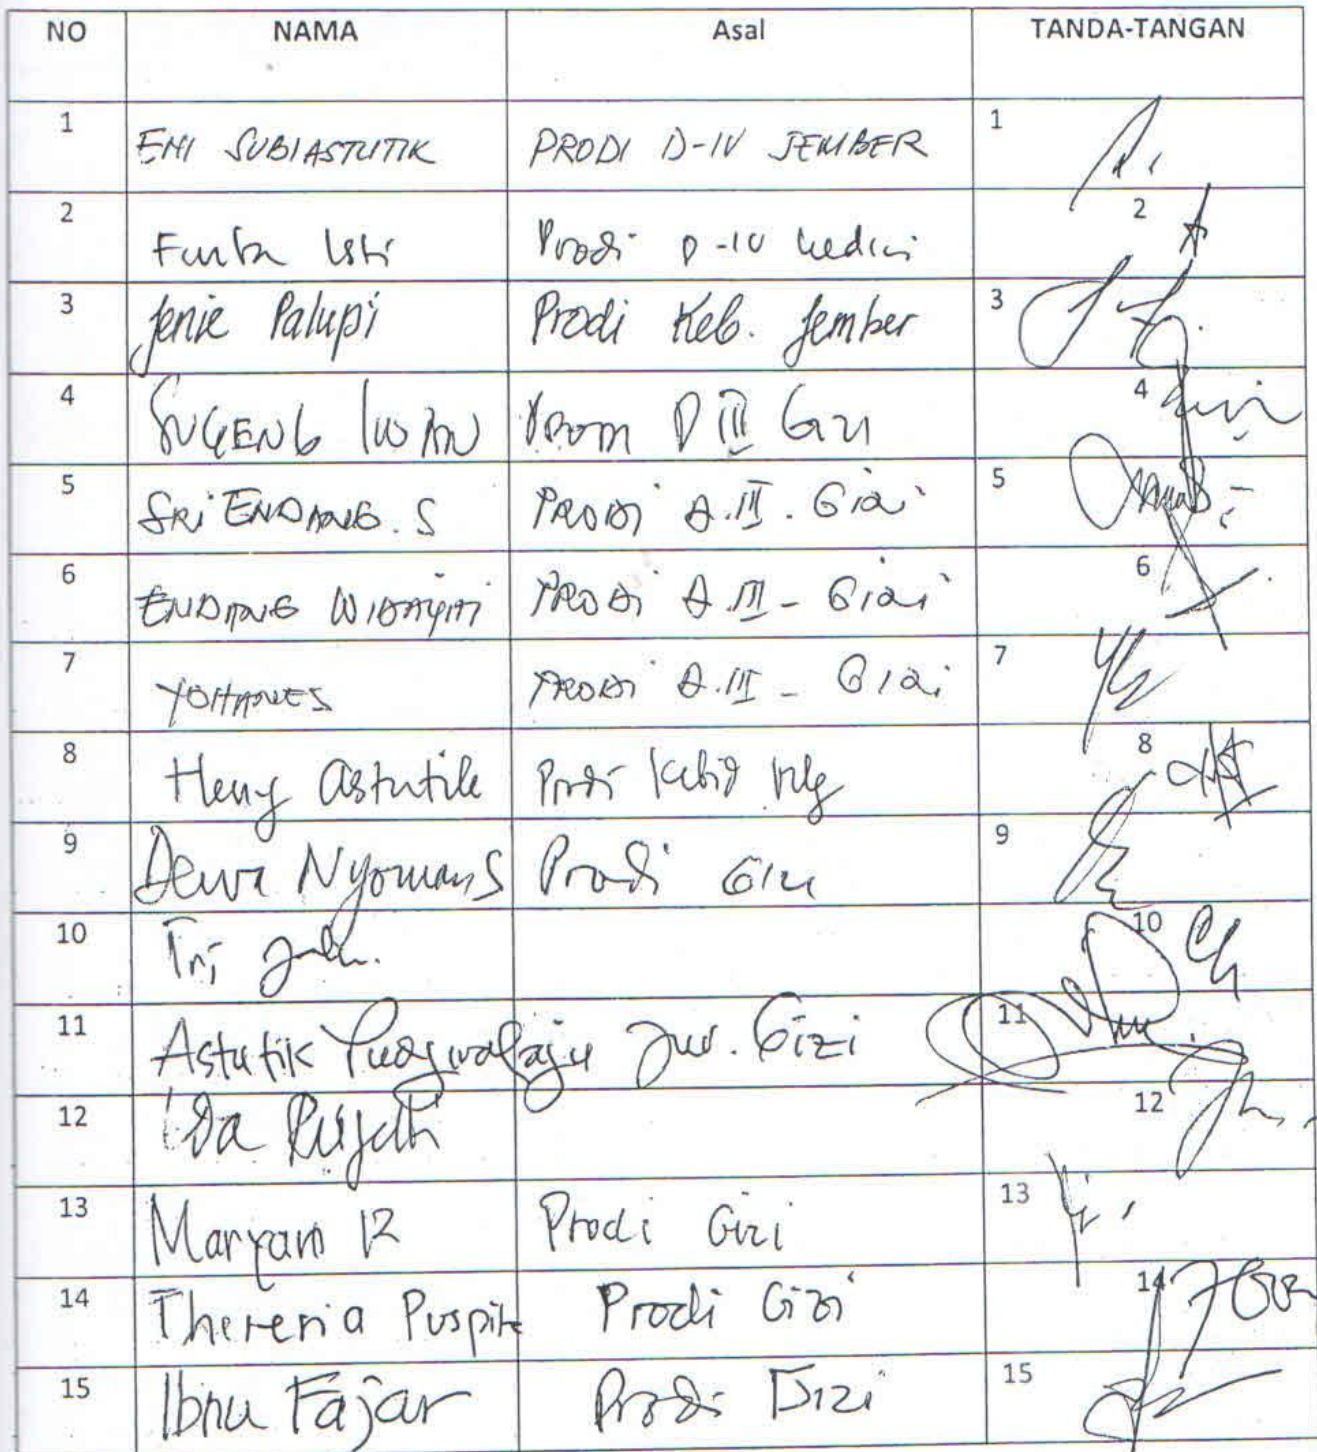 NO NAMA Asal TANDA-TANGAN
1 ENI SUBIASTUTIK PRODI D-IV JEMBER 1
2 Isti Prodi D-IV 2
3 Jenie Palupi Prodi Keb. Jember 3
4 SUGENG IWAN D III Gizi 4
5 SRI ENDANG. S PRODI D.III. Gizi 5
6 ENDANG WIDAYATI PRODI D.III - Gizi 6
7 YOHANES PRODI D.III - Gizi 7
8 Heny Astutik Prodi 8
9 Dewa Nyoman S Prodi Gizi 9
10 Tri 10
11 Astutik Jur. Gizi 11
12 Ida 12
13 Maryam R Prodi Gizi 13
14 Theresia Puspita Prodi Gizi 14
15 Ibnu Fajar Prodi Gizi 15